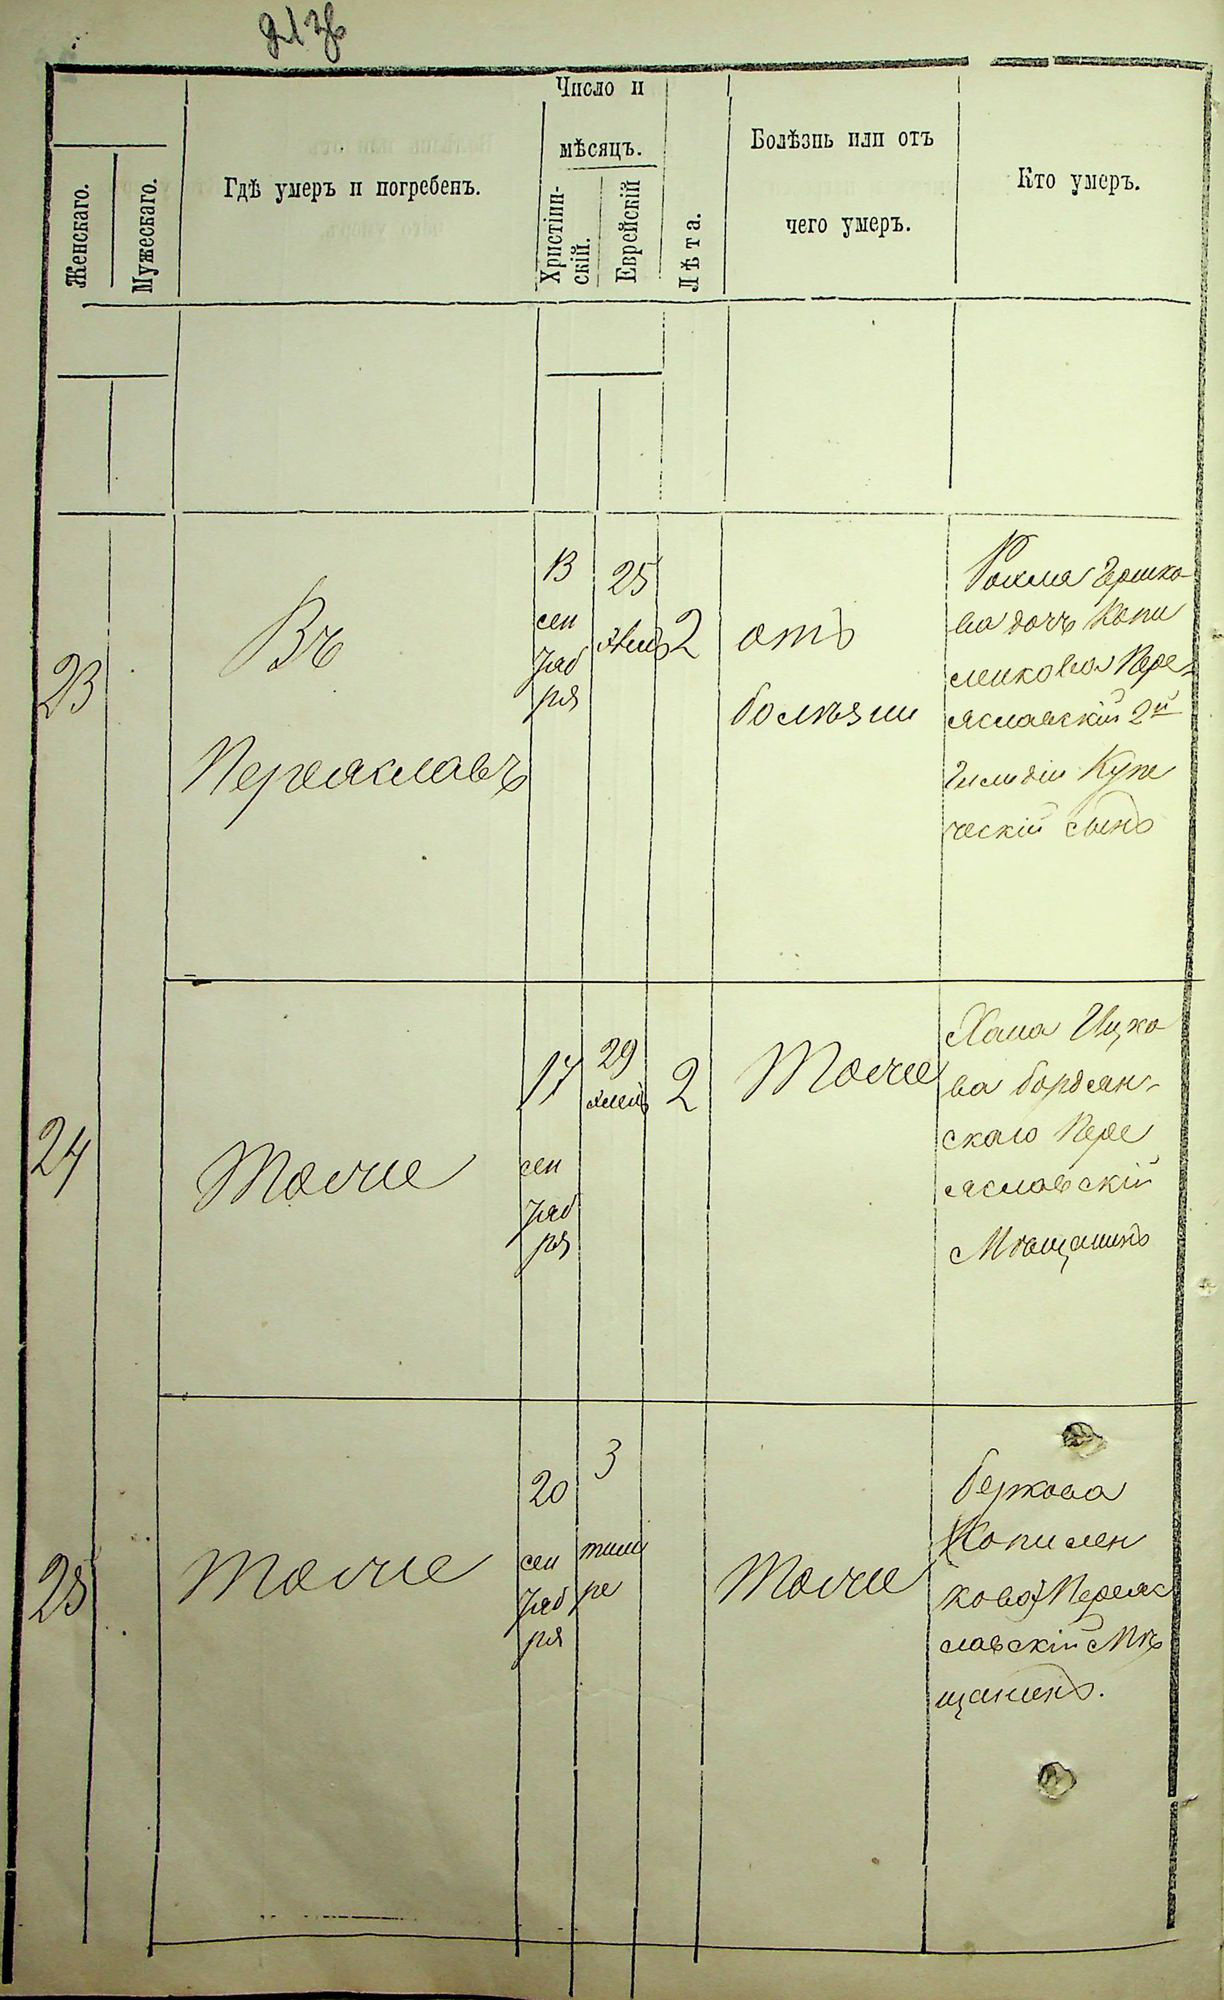 Число и
мѣсяцъ.
Женскаго.
Мужескаго.
Гдѣ умеръ и погребенъ.
Христіин-
скій.
Еврейскій
Лѣта.
Болѣзнь или отъ
чего умеръ.
Кто умеръ.
23
Въ
Переяславѣ
13
сен
тяб
ря
25
2
отъ
болѣзни
Гершко
ва дочь Копи
ленкова Пере-
яславскій 2й
Гильдіи Купе
ческій сынъ
24
Тоже
17
сен
тяб
ря
29
2
Тоже
Хана Ицко
ва бордян-
скаго Пере
яславскій
Мѣщанинъ
25
Тоже
20
сен
тяб
ря
3
тиш
ре
Тоже
Беркова
Копилен
кова Переяс
лавскій Мѣ
щанинъ.